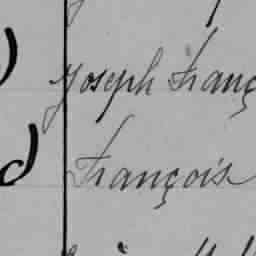 Joseph Franç
François